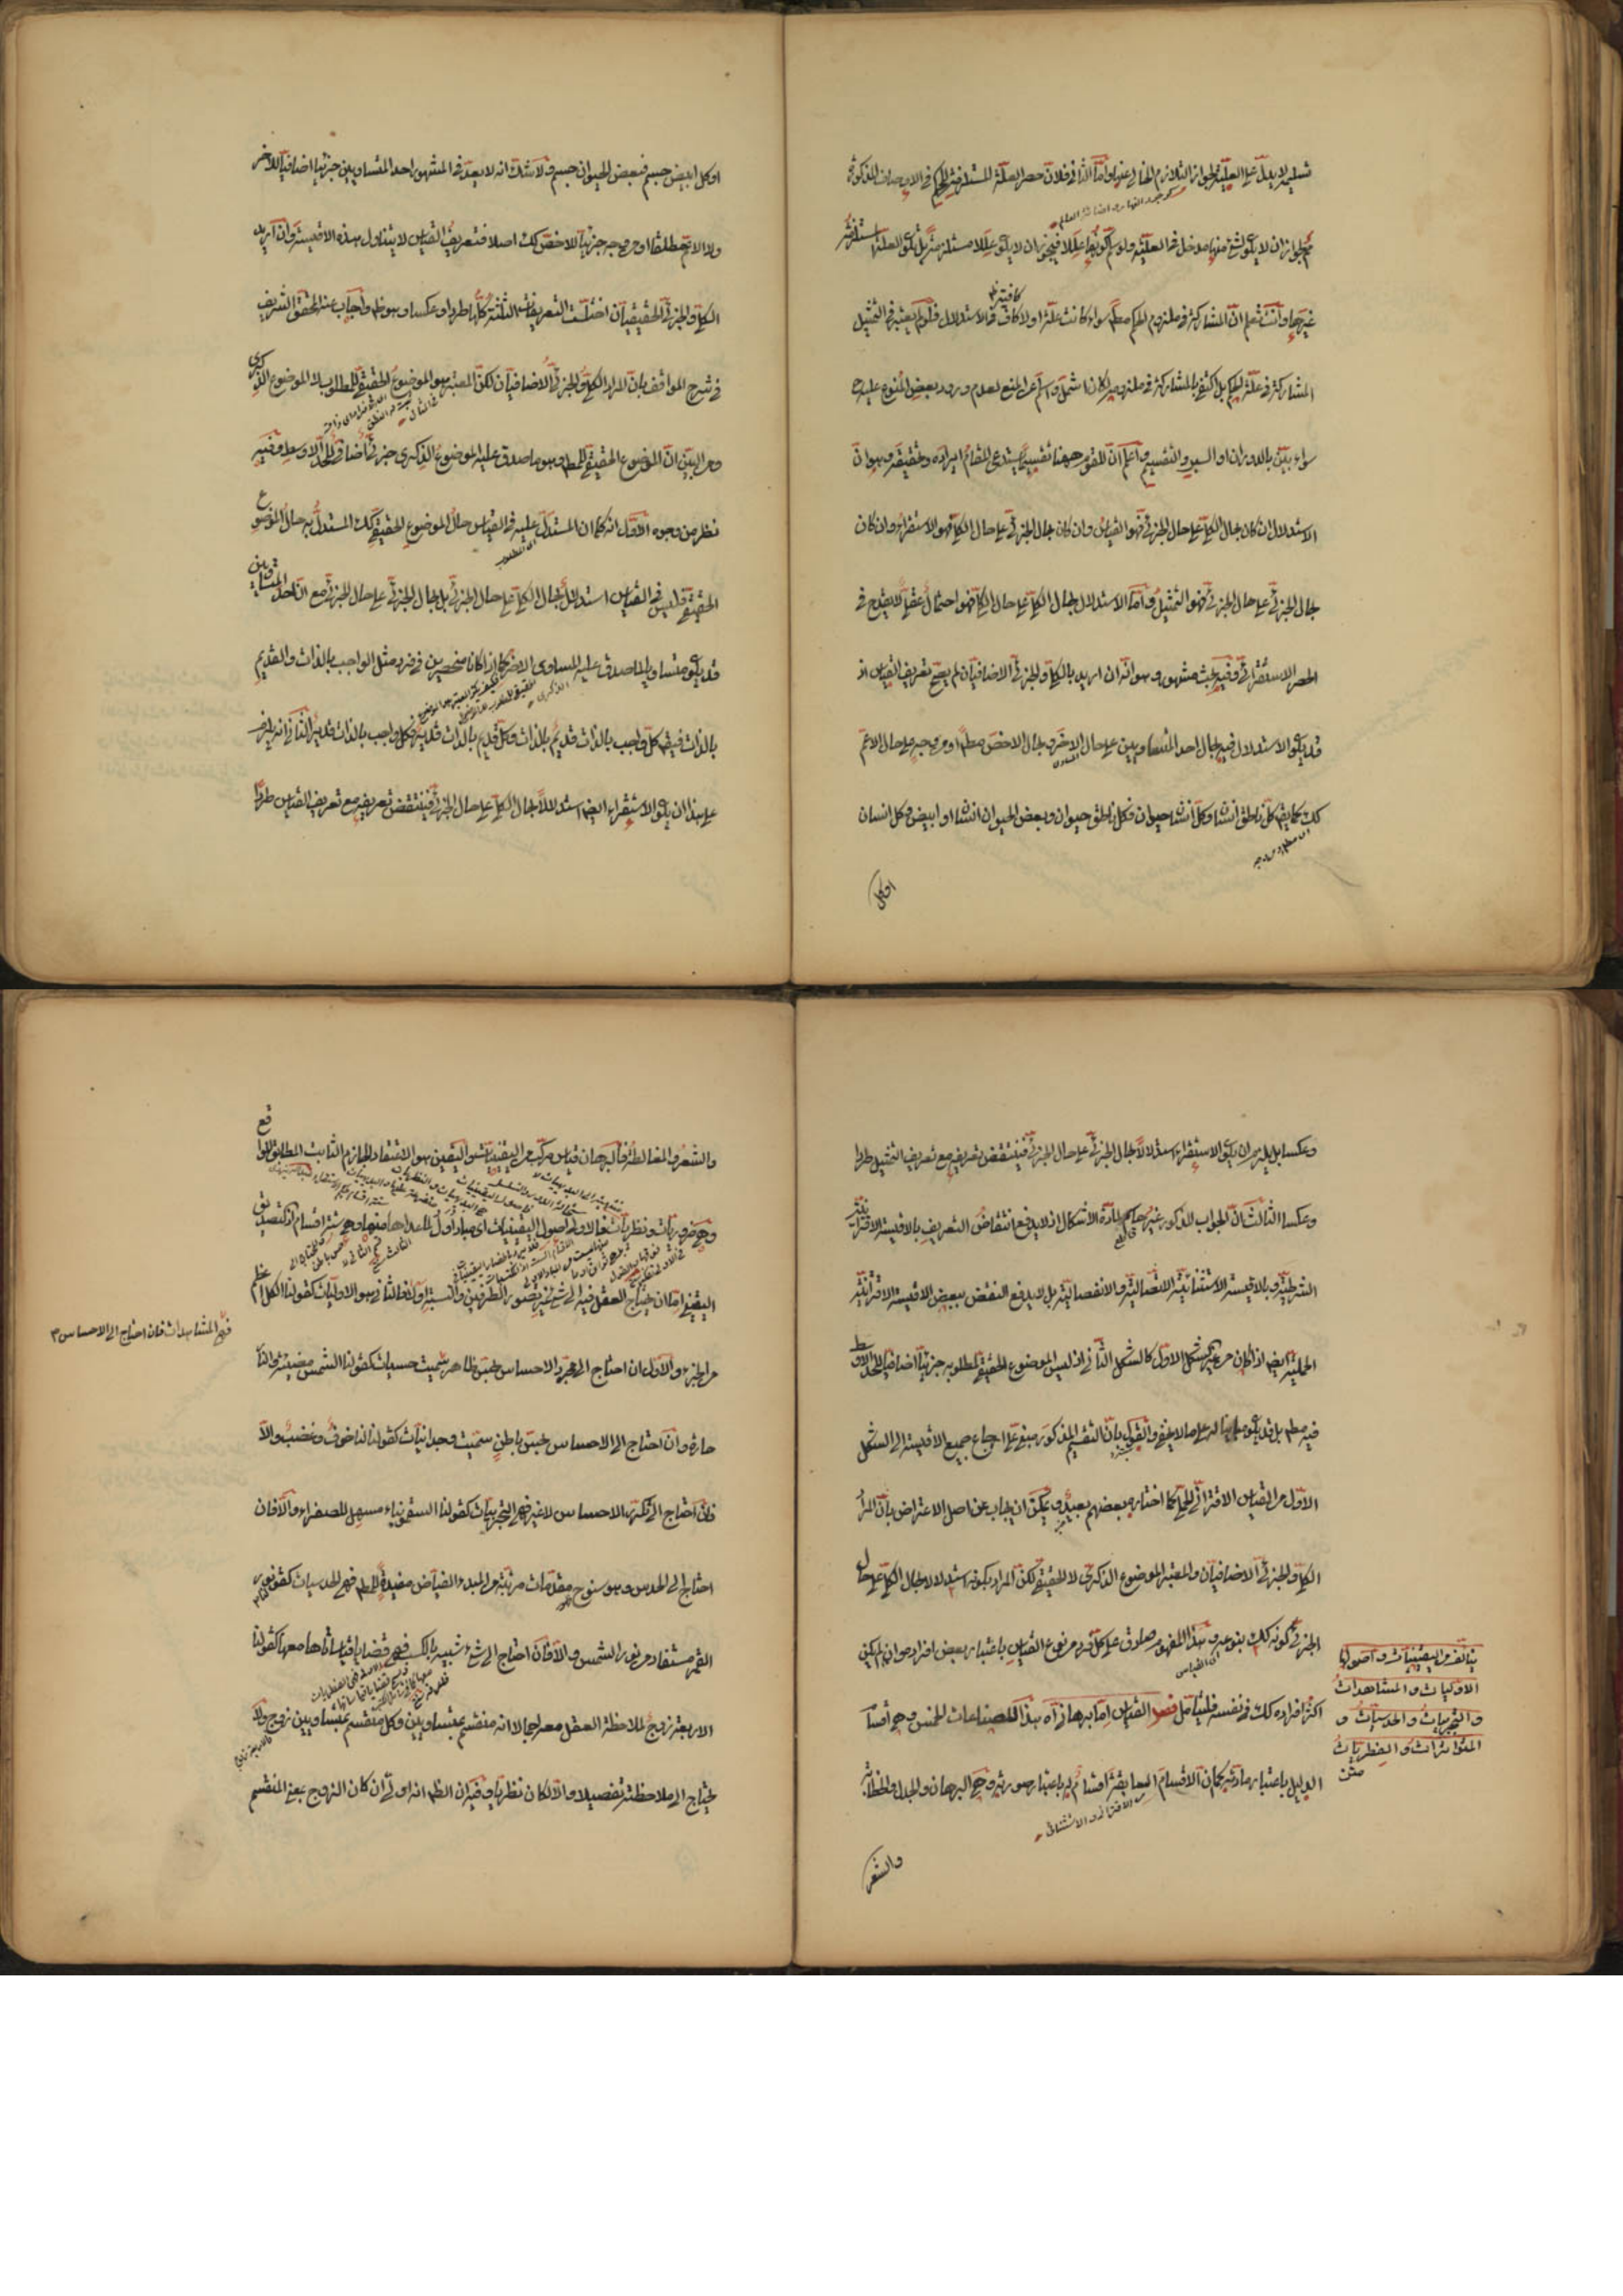 تسليمه لا يدل على العلية لجواز التلازم الخالي عنها وأما الثاني فلان حصر العلة المستلزمة للحكم في الاوصاف المذكورة
مم لجواز ان لا يكون لشئ منها مدخل في العلية ولو سلم كونها عللا فيجوز ان لا يكون عللا مستلزمة بل يكون العلة المستلزمة
غيرها وانت تعلم ان المشاركة في ملزوم الحكم مط سواء كانت علة او لا كاف في الاستدلال فلو لم يعتبر في التمثيل
المشاركة في علة الحكم بل اكتفى بالمشاركة في ملزومه لكان اشمل واسلم عن المنع لعدم ورود بعض المنوع عليه
سواء بين بالدوران او السبر والتقسيم واعلم ان للقوم ههنا تقسيما يستدعي المقام ايراده وتحقيقه وهو ان
الاستدلال ان كان بحال الكلي على حال الجزئي فهو القياس وان كان بحال الجزئي على حال الكلي فهو الاستقراء وان كان
بحال الجزئي على حال الجزئي فهو التمثيل واما الاستدلال بحال الكلي على حال الكلي فهو احتمال عقلي لا يقدح في
الحصر الاستقرائي وفيه بحث مشهور وهو انه ان اريد بالكلي والجزئي الاضافيان لم يصح تعريف القياس اذ
قد يكون الاستدلال فيه بحال احد المتساويين على حال الاخر وبحال الاخص مط او من وجه على حال الاعم
كك كما يقال كل ناطق انسان وكل انسان حيوان فكل ناطق حيوان وبعض الحيوان انسان او ابيض وكل انسان
او كل
او كل ابيض جسم فبعض الحيوان جسم ولا شك انه لا يعد في المشهور احد المتساويين جزئيا اضافيا للاخر
ولا الاعم مطلقا او من وجه جزئيا للاخص كك اصلا فتعريف القياس لا يتناول هذه الاقيسة وان اريد
الكلي والجزئي الحقيقيان اختلت التعريفات الثلثة كلها طردا وعكسا وهو ظ واجاب عنه المحقق الشريف
في شرح المواقف بان المراد الكلي والجزئي الاضافيان لكن المعتبر هو الموضوع الحقيقي للمطلوب لا الموضوع الذكري
ومن البين ان الموضوع الحقيقي للمط وهو ما صدق عليه الموضوع الذكري جزئي اضافي للحد الاوسط وفيه
نظر من وجوه الاول انه كما ان المستدل عليه في القياس حال الموضوع الحقيقي كك المستدل به حال الموضوع
الحقيقي فليس في القياس استدلال بحال الكلي على حال الجزئي بل بحال الجزئي على حال الجزئي مع ان احد المتساويين
قد يكون مساويا لما صدق عليه المساوي الاخر كما اذا كانا منحصرين في فرد مثل الواجب بالذات والقديم
بالذات فيقال كل واجب بالذات قديم بالذات وكل قديم بالذات فكل واجب بالذات الثاني انه يلزم
على هذا ان يكون الاستقراء ايضا استدلالا بحال الكلي على حال الجزئي فينتقض تعريفه مع تعريف القياس طردا
وعكسا بل يلزم ان يكون الاستقراء استدلالا بحال الجزئي على حال الجزئي فينتقض تعريفه مع تعريف التمثيل طردا
وعكسا الثالث ان الجواب المذكور غير حاسم لمادة الاشكال اذ لا يدفع انتقاض التعريف بالاقيسة الاقترانية
الشرطية وبالاقيسة الاستثنائية الاتصالية والانفصالية بل لا يدفع النقض ببعض الاقيسة الاقترانية
الحملية ايضا اذا كان من غير الشكل الاول كالشكل الثاني اذ ليس الموضوع الحقيقي لمطلوبه جزئيا اضافيا للحد الاوسط
فيه مط بل قد يكون مباينا له على ما لا يخفى والقول بان التقسيم المذكور مبني على ارجاع جميع الاقيسة الى الشكل
الاول من القياس الاقتراني الحملي كما اختاره بعضهم بعيد ويمكن ان يجاب عن اصل الاعتراض بان المراد
الكلي والجزئي الاضافيان والمعتبر الموضوع الذكري لا الحقيقي لكن المراد بكونه استدلالا بحال الكلي على حال
الجزئي كونه كك بنوعه وهذا المفهوم صادق على كل فرد من نوع القياس باعتبار بعض افراده وان لم يكن
اكثر افراده كك في نفسه فليتأمل فصل القياس اما برهاني آه هذا للصناعات الخمس وهي اقسام
الدليل باعتبار مادته كما ان الاقسام السابقة اقسام له باعتبار صورته وهي البرهان والجدل والخطابة
من الاقتراني والاستثنائي
يتألف من اليقينيات واصولها
الاوليات والمشاهدات
والتجربيات والحدسيات و
المتواترات والفطريات
متن
والشعر
والشعر والمغالطة فالبرهان قياس مركب من اليقينيات واليقين هو الاعتقاد الجازم الثابت المطابق للواقع
وهي ضروريات ونظريات فالاولى اصول اليقينيات اي مباد اول لما عداها منها وهي ستة اقسام اذ التصديق
اليقيني اما ان يحتاج العقل فيه الى شئ غير تصور الطرفين والنسبة او لا فالثاني هو الاوليات كقولنا الكل اعظم
من الجزء والاول ان احتاج الى مجرد الاحساس بحس ظاهر سميت حسيات كقولنا الشمس مضيئة والنار
حارة وان احتاج الى الاحساس بحس باطن سميت وجدانيات كقولنا ان لنا خوفا وغضبا والا
فان احتاج الى تكرر الاحساس لا غير فهي التجربيات كقولنا السقمونياء مسهل للصفراء والا فان
احتاج الى الحدس وهو سنوح مقدمات مرتبة من المبدء الفياض مفيدة للمط فهي الحدسيات كقولنا نور
القمر مستفاد من نور الشمس والا فان احتاج الى شئ شبيه بالكسب فهي قضايا قياساتها معها كقولنا
الاربعة زوج لملاحظة العقل معه اجمالا انه منقسم بمتساويين وكل منقسم بمتساويين زوج ولا
يحتاج الى ملاحظته تفصيلا والا لكان نظريا وفيه ان الظ انه اولي ان كان الزوج بمعنى المنقسم
فهي المشاهدات فان احتاج الى الاحساس